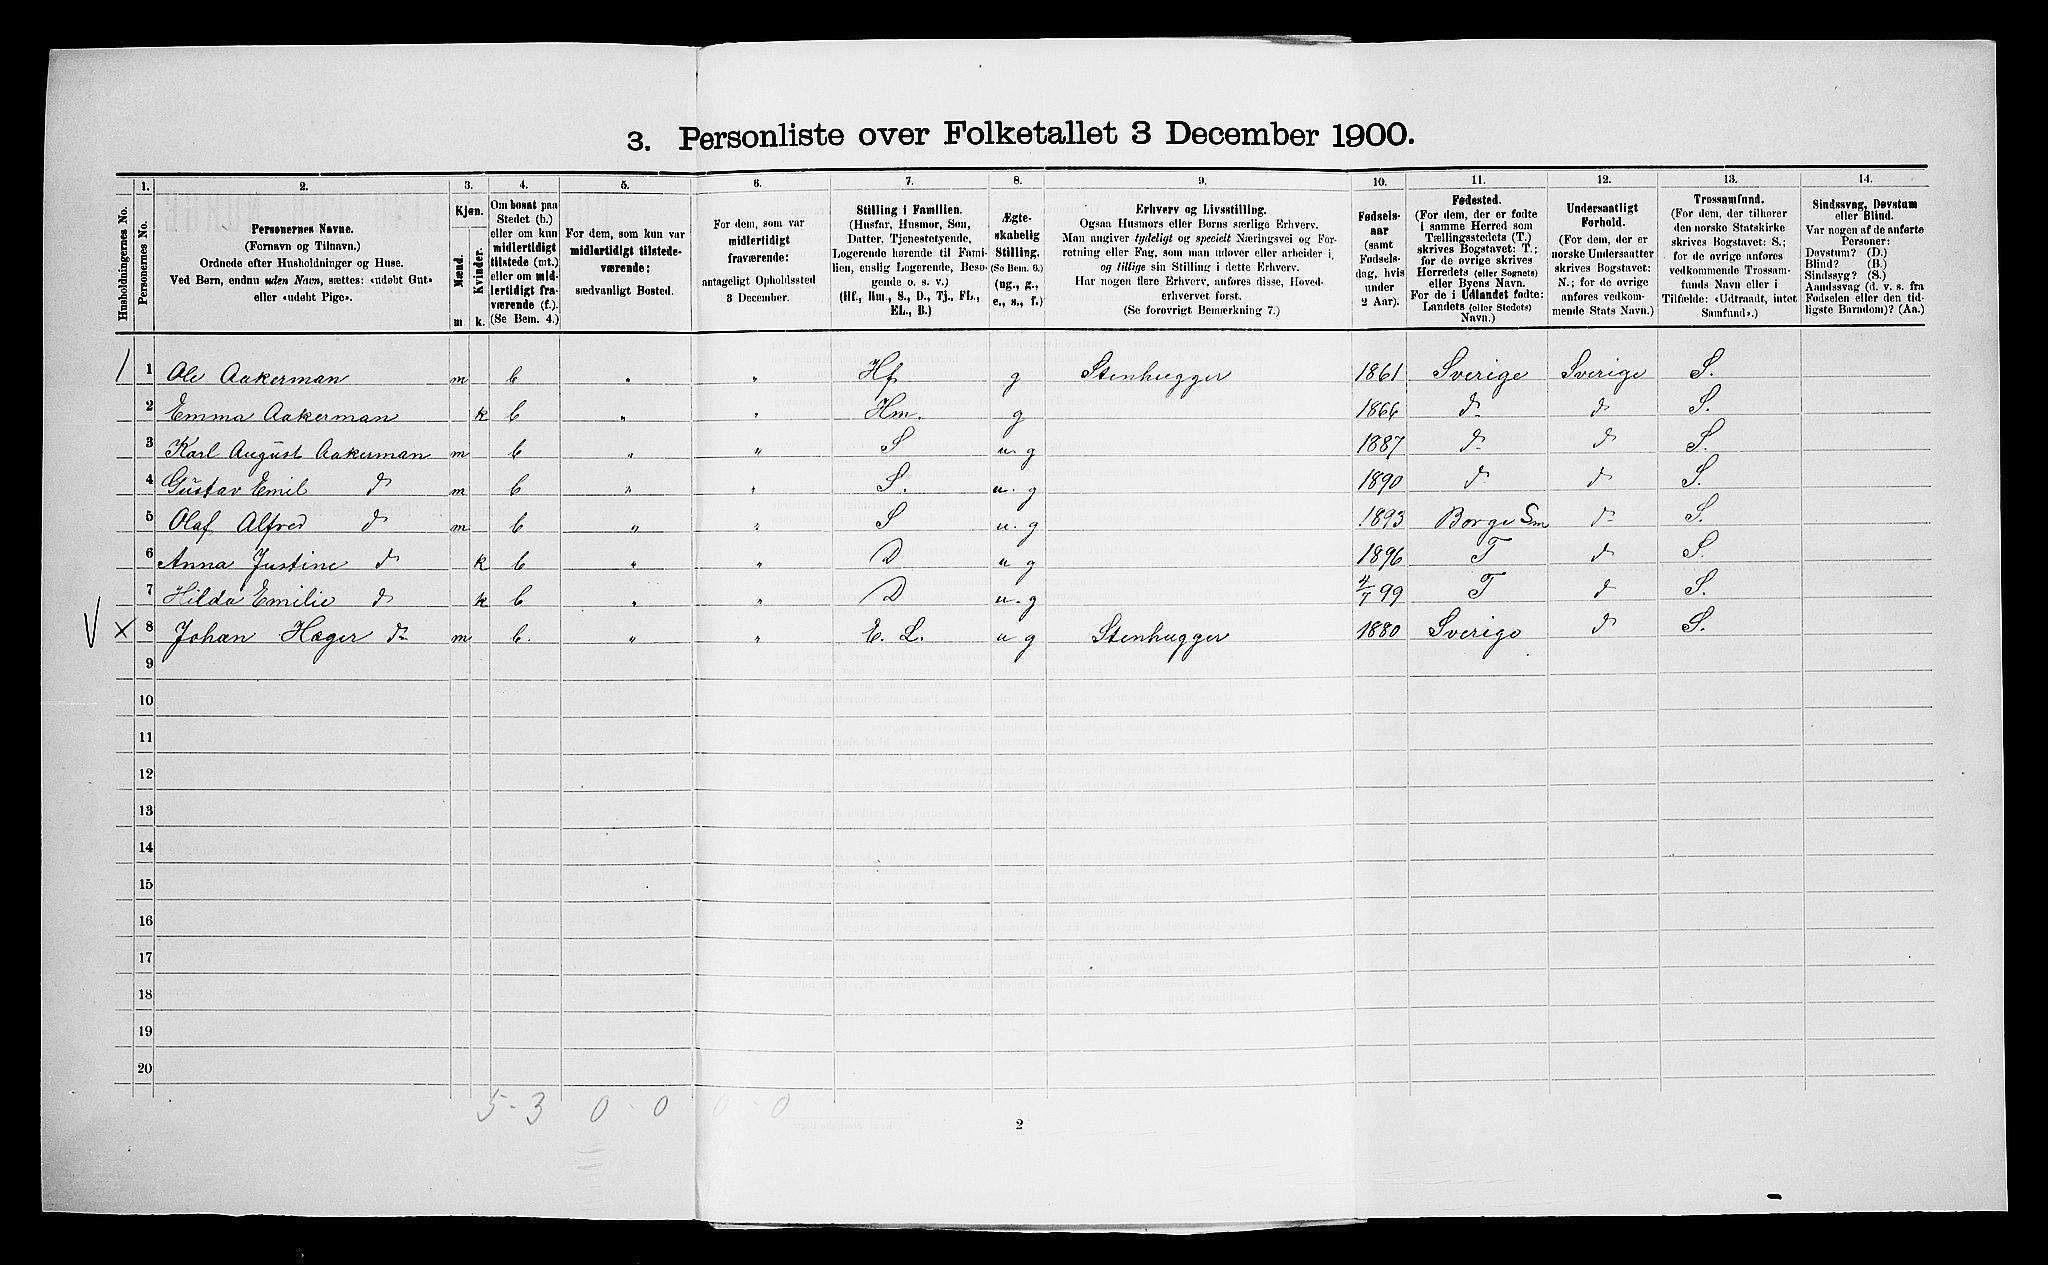 3. Personliste over Folketallet 3 December 1900.
Husholdningernes No.
1. Personernes No.
2. Personernes Navne.
(Fornavn og Tilnavn.)
Ordnede efter Husholdninger og Huse.
Ved Børn, endnu uden Navn, sættes: «udøbt Gut»
eller «udøbt Pige».
3. Kjøn.
Mænd. m
Kvinder. k.
4. Om bosat paa
Stedet (b.)
eller om kun
midlertidigt
tilstede (mt.)
eller om mid-
lertidigt fra-
værende (f.).
(Se Bem. 4.)
5. For dem, som kun var
midlertidigt tilstede-
værende:
sædvanligt Bosted.
6. For dem, som var
midlertidigt
fraværende:
antageligt Opholdssted
3 December.
7. Stilling i Familien.
(Husfar, Husmor, Søn,
Datter, Tjenestetyende,
Logerende hørende til Fami-
lien, enslig Logerende, Besø-
gende o. s. v.)
(Hf., Hm., S., D., Tj., FL.,
EL., B.)
8. Ægte-
skabelig
Stilling.
(Se Bem. 6.)
(ug., g.,
e., s., f.)
9. Erhverv og Livsstilling.
Ogsaa Husmors eller Børns særlige Erhverv.
Man angiver tydeligt og specielt Næringsvei og For-
retning eller Fag, som man udøver eller arbeider i,
og tillige sin Stilling i dette Erhverv.
Har nogen flere Erhverv, anføres disse, Hoved-
erhvervet først.
(Se forøvrigt Bemærkning 7.)
10. Fødsels-
aar
(samt
Fødsels-
dag, hvis
under
2 Aar).
11. Fødested.
(For dem, der er fødte
i samme Herred som
Tællingsstedets (T.)
skrives Bogstavet: T.;
for de øvrige skrives
Herredets (eller Sognets)
eller Byens Navn.
For de i Udlandet fødte:
Landets (eller Stedets)
Navn.)
12. Undersaatligt
Forhold.
(For dem, der er
norske Undersaatter
skrives Bogstavet:
N.; for de øvrige
anføres vedkom-
mende Stats Navn.)
13. Trossamfund.
(For dem, der tilhører
den norske Statskirke
skrives Bogstavet: S.;
for de øvrige anføres
vedkommende Trossam-
funds Navn eller i
Tilfælde: «Udtraadt, intet
Samfund».)
14. Sindssvag, Døvstum
eller Blind.
Var nogen af de anførte
Personer:
Døvstum? (D.)
Blind? (B.)
Sindssyg? (S.)
Aandssvag (d. v. s. fra
Fødselen eller den tid-
ligste Barndom)? (Aa.)
1 1 Ole Aakerman m b " " Hf g Stenhugger 1861 Sverige Sverige S.
2 Emma Aakerman k b " " Hm. g 1866 do do S.
3 Karl August Aakerman m b " " S u. g 1887 do do S.
4 Gustav Emil do m b " " S. u. g 1890 do do S.
5 Olaf Alfred do m b " " S u. g 1893 Borge Sm do S.
6 Anna Justine do k b " " D u g 1896 T do S.
7 Hilda Emilie do k b " " D u. g 4/7 99 T do S.
V x 8 Johan Hæger do m b. " " E. L. u g Stenhugger 1880 Sverige do S.
9
10
11
12
13
14
15
16
17
18
19
20
5-3 0-0 0-0
2